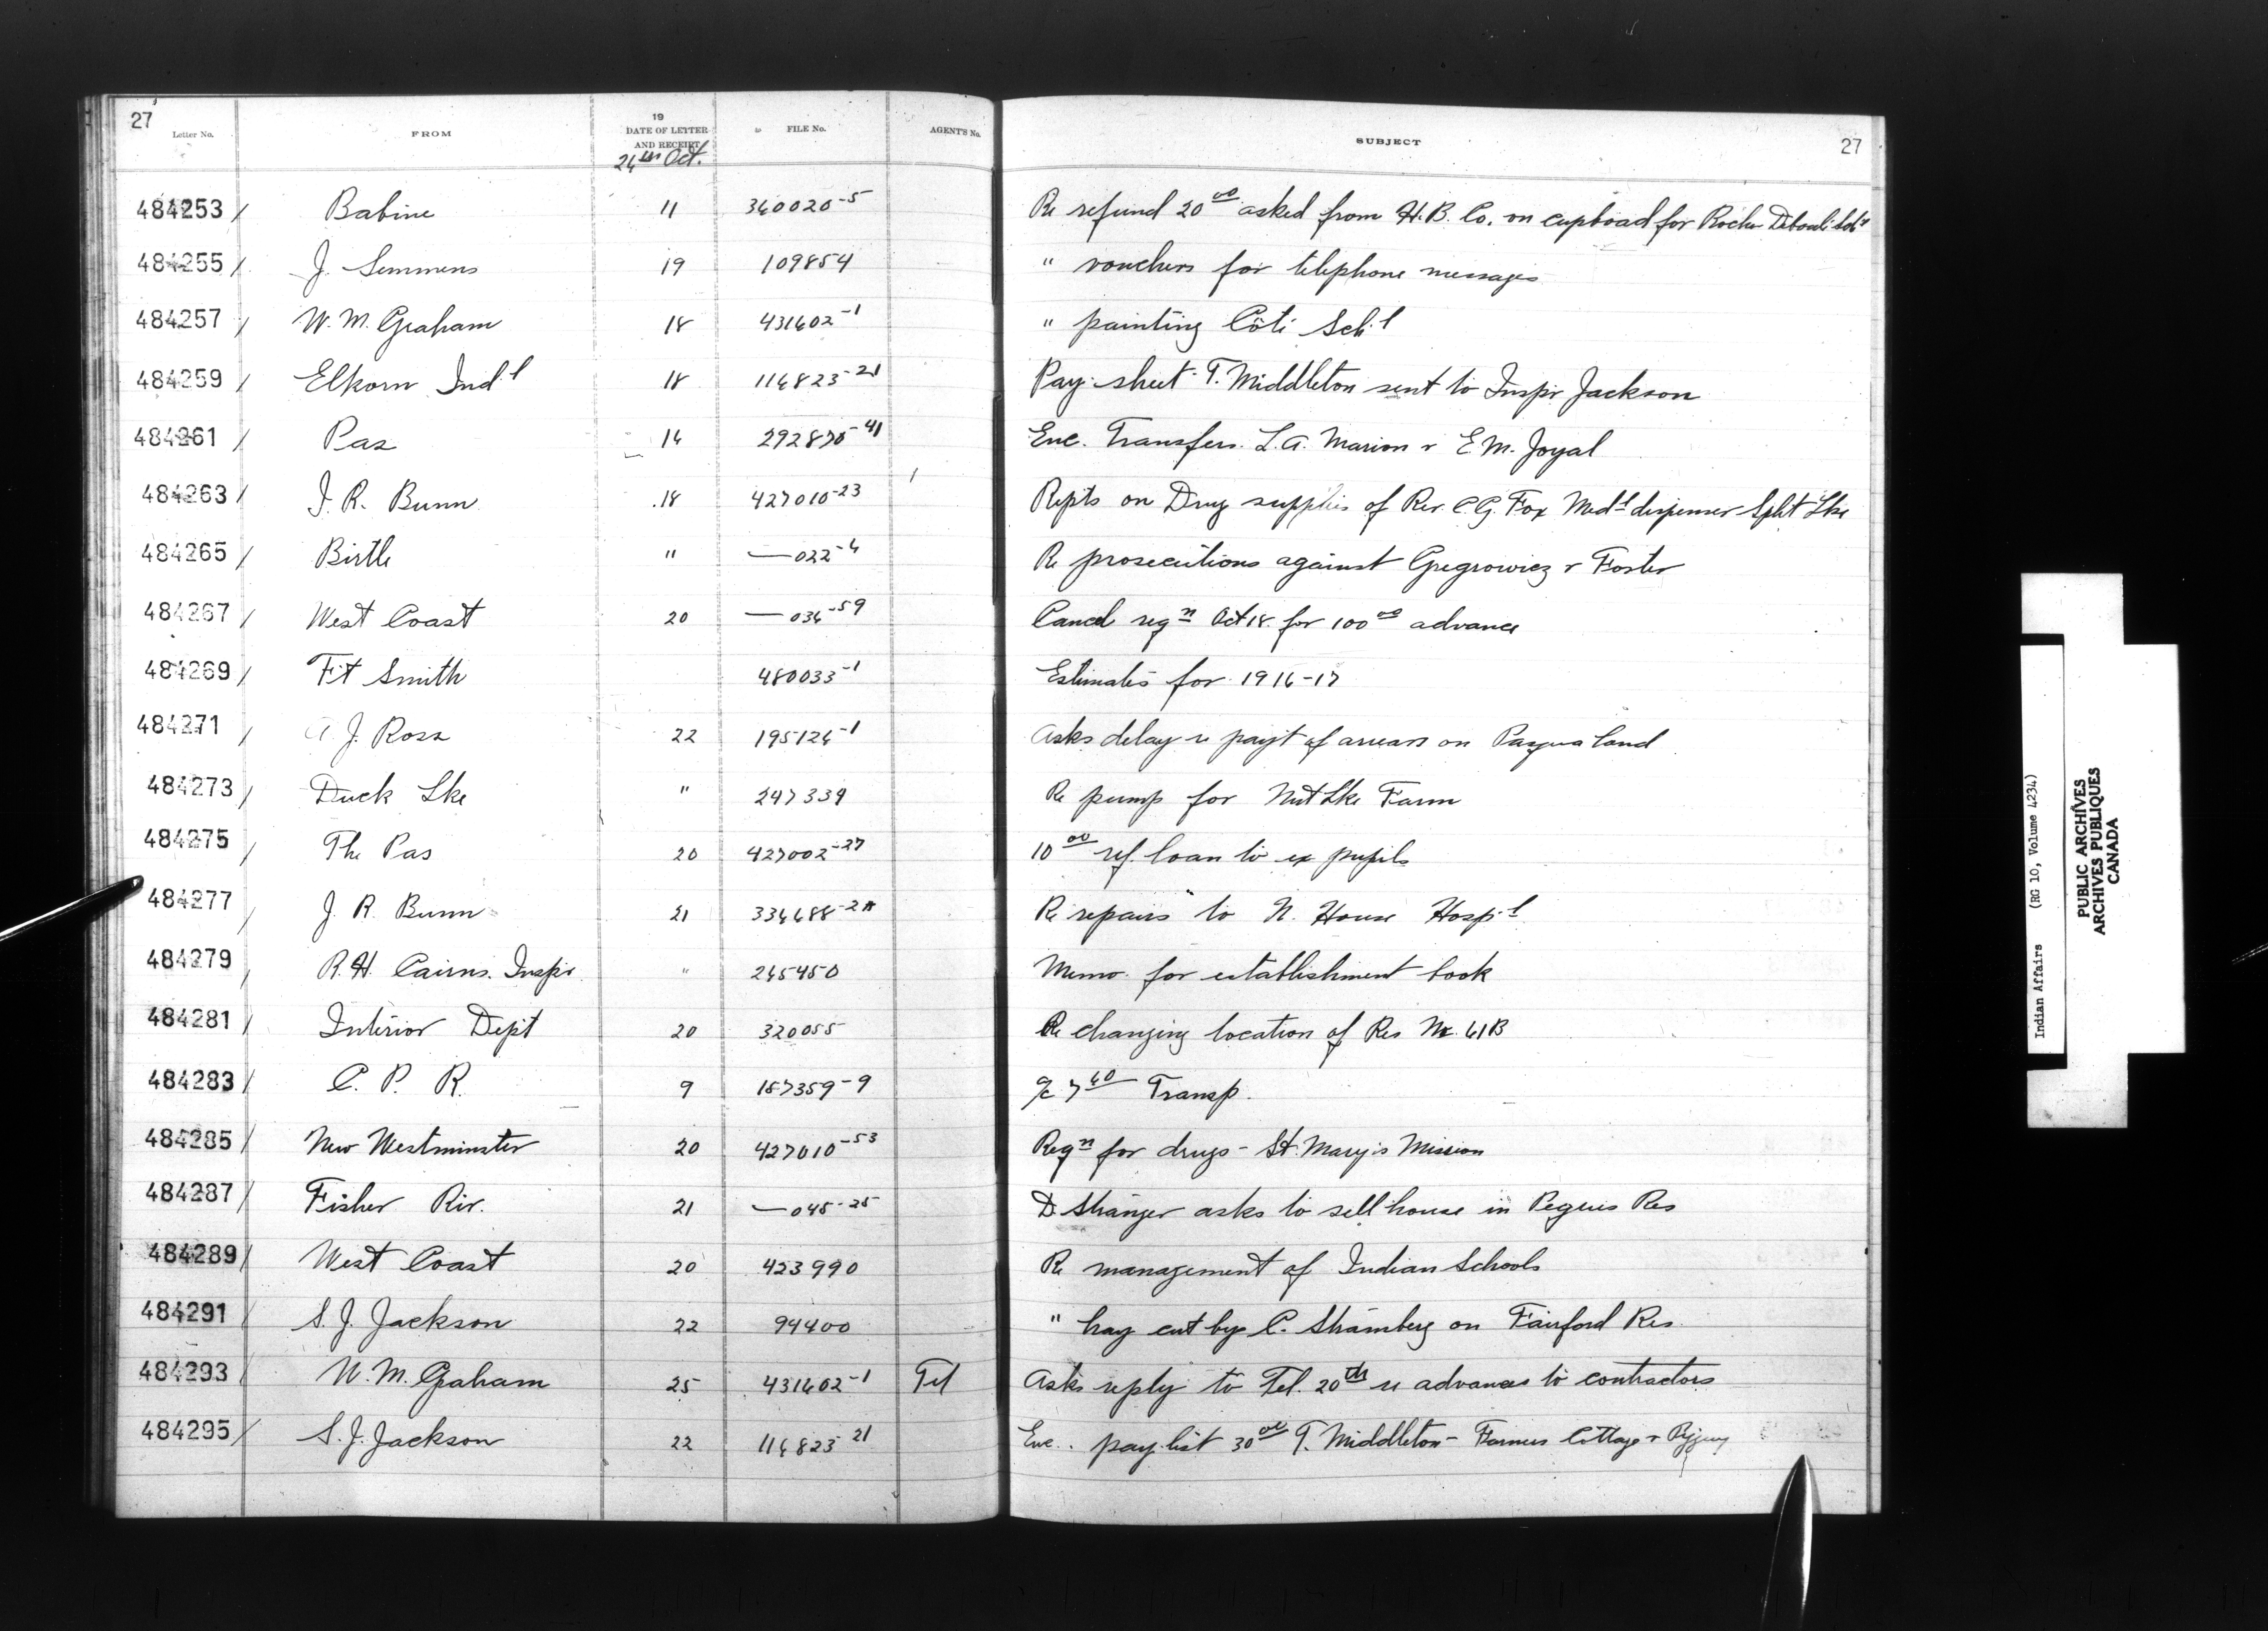 27
Letter No. FROM 19 DATE OF LETTER AND RECEIPT FILE No. AGENT'S No. SUBJECT 27
26th Oct.
484253 / Babine 11 360020-5 Re refund 20 00 asked from H.B. Co. on cupboard for Rocher
484255 / J. Semmens 19 109854 " vouchers for telephone messages
484257 / W. M. Graham 18 431602-1 " painting Côté Sch'l
484259 / Elkorn Ind'l 18 116823-21 Pay sheet T. Middleton sent to Inspr Jackson
484261 / Pas 14 292870-41 Enc. Transfers. L.A. Marion & E.M. Joyal
484263 / J. R. Bunn 18 427010-23 Repts on Drug supplies of Rev. C.G. Fox Med'l dispenser Split Lke
484265 / Birtle " —022-4 Re prosecutions against Gregrowicz & Foster
484267 / West Coast 20 —036-59 Cancel reqn Oct 18. for 100 00 advance
484269 / Ft Smith 480033-1 Estimates for 1916-17
484271 / A. J. Ross 22 195126-1 Asks delay re payt of arrears on Pasqua land
484273 / Duck Lke " 247339 Re pump for Nut Lke Farm
484275 / The Pas 20 427002-27 10 00 ref. loan to ex pupils
484277 / J. R. Bunn 21 336688-2A Re repairs to N. House Hosp'l
484279 / R. H. Cairns. Inspr " 265450 Memo. for establishment book
484281 / Interior Dept 20 320055 Re changing location of Res No. 61B
484283 / C. P. R. 9 157359-9 a/c 7 60 Transp.
484285 / New Westminster 20 427010-53 Reqn for drugs - St. Mary's Mission
484287 / Fisher Riv. 21 —045-25 D Stranger asks to sell house in Peguis Res
484289 / West Coast 20 423990 Re management of Indian Schools
484291 / S. J. Jackson 22 94400 " hay cut by C. Stramberg on Fairford Res.
484293 / W. M. Graham 25 431602-1 Tel Asks reply to Tel. 20th re advances to contractors
484295 / S. J. Jackson 22 116823 21 Enc. pay-list 30 00 T. Middleton - Farmers Cottage &
Indian Affairs (RG 10, Volume 4234)
PUBLIC ARCHIVES
ARCHIVES PUBLIQUES
CANADA